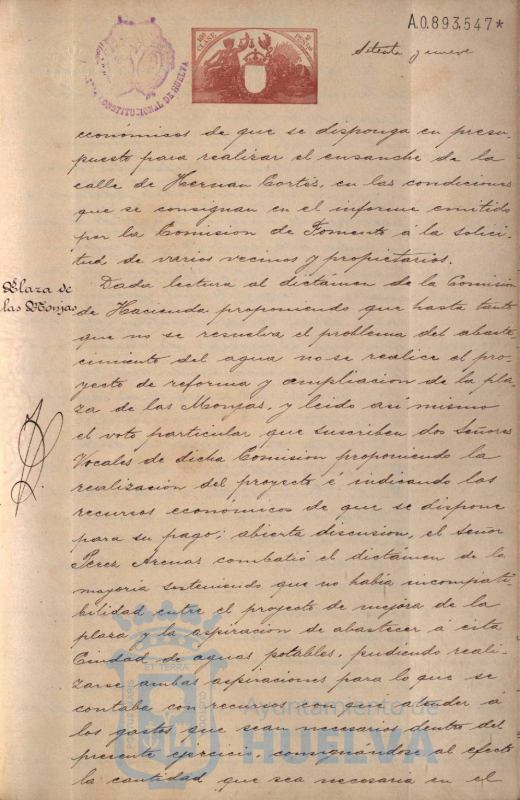 A.0.893.547*
CONSTITUCIONAL DE HUELVA
10ª CLASE
2 PESETAS
Setenta y nueve
económicos de que se disponga en presu-
puesto para realizar el ensanche de la
calle de Hernan Cortés, en las condiciones
que se consignan en el informe emitido
por la Comision de Fomento á la solici-
tud de varios vecinos y propietarios.
Plaza de
las Monjas
Dada lectura al dictámen de la Comision
de Hacienda proponiendo que hasta tanto
que no se resuelva el problema del abaste-
cimiento del agua no se realice el pro-
yecto de reforma y ampliacion de la pla-
za de las Monjas, y leido asi mismo
el voto particular que suscriben dos Señores
Vocales de dicha Comision proponiendo la
realización del proyecto é indicando los
recursos economicos de que se dispone
para su pago; abierta discusion, el Señor
Perez Arenas combatió el dictámen de la
mayoria sosteniendo que no habia incompati-
bilidad entre el proyecto de mejora de la
plaza y la aspiracion de abastecer á esta
Ciudad de aguas potables, pudiendo reali-
zarse ambas aspiraciones para lo que se
contaba con recursos con que atender á
los gastos que sean necesarios dentro del
presente ejercicio, consignándose al efecto
la cantidad que sea necesaria en el
PORTUS MARIS
ET TERRÆ
CUSTODIA
Ayuntamiento de
HUELVA